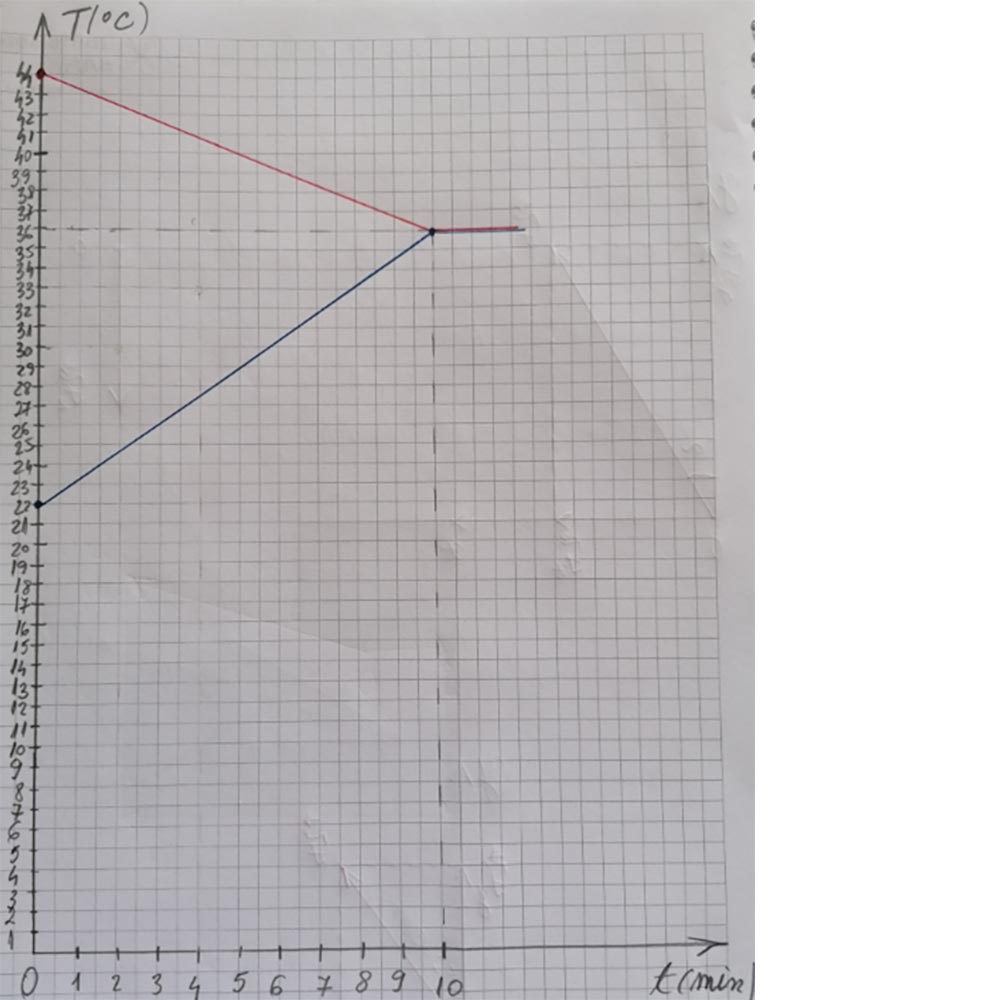 T(°C)
44
43
42
41
40
39
38
37
36
35
34
33
32
31
30
29
28
27
26
25
24
23
22
21
20
19
18
17
16
15
14
13
12
11
10
9
8
7
6
5
4
3
2
1
0 1 2 3 4 5 6 7 8 9 10 t(min)